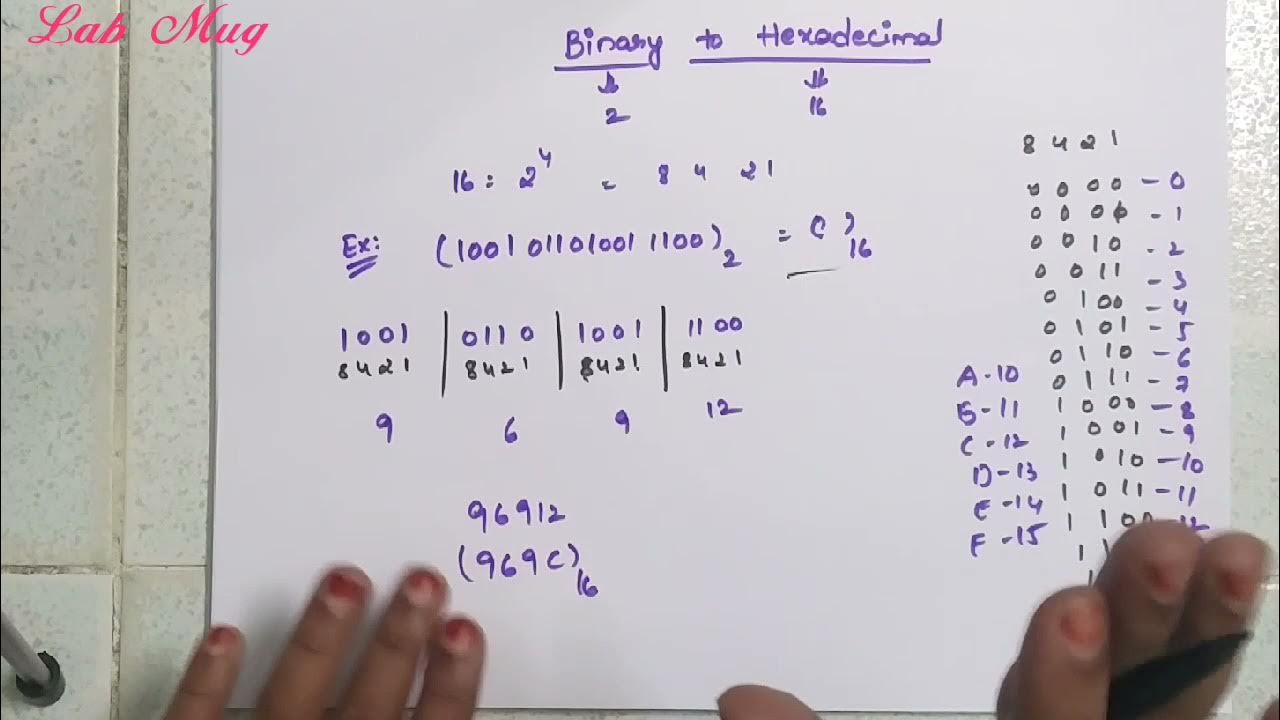 Lab Mug
Binary to Hexadecimal
2 16
16 : 2^4 = 8 4 2 1
Ex: (1001 01101001 1100)2 = ( )16
1001 | 0110 | 1001 | 1100
8421 | 8421 | 8421 | 8421
9 6 9 12
96912
(969C)16
8 4 2 1
0 0 0 0 - 0
0 0 0 0 - 1
0 0 1 0 - 2
0 0 1 1 - 3
0 1 0 0 - 4
0 1 0 1 - 5
0 1 1 0 - 6
0 1 1 1 - 7
1 0 0 0 - 8
1 0 0 1 - 9
1 0 1 0 - 10
1 0 1 1 - 11
1 1 0
A - 10
B - 11
C - 12
D - 13
E - 14
F - 15